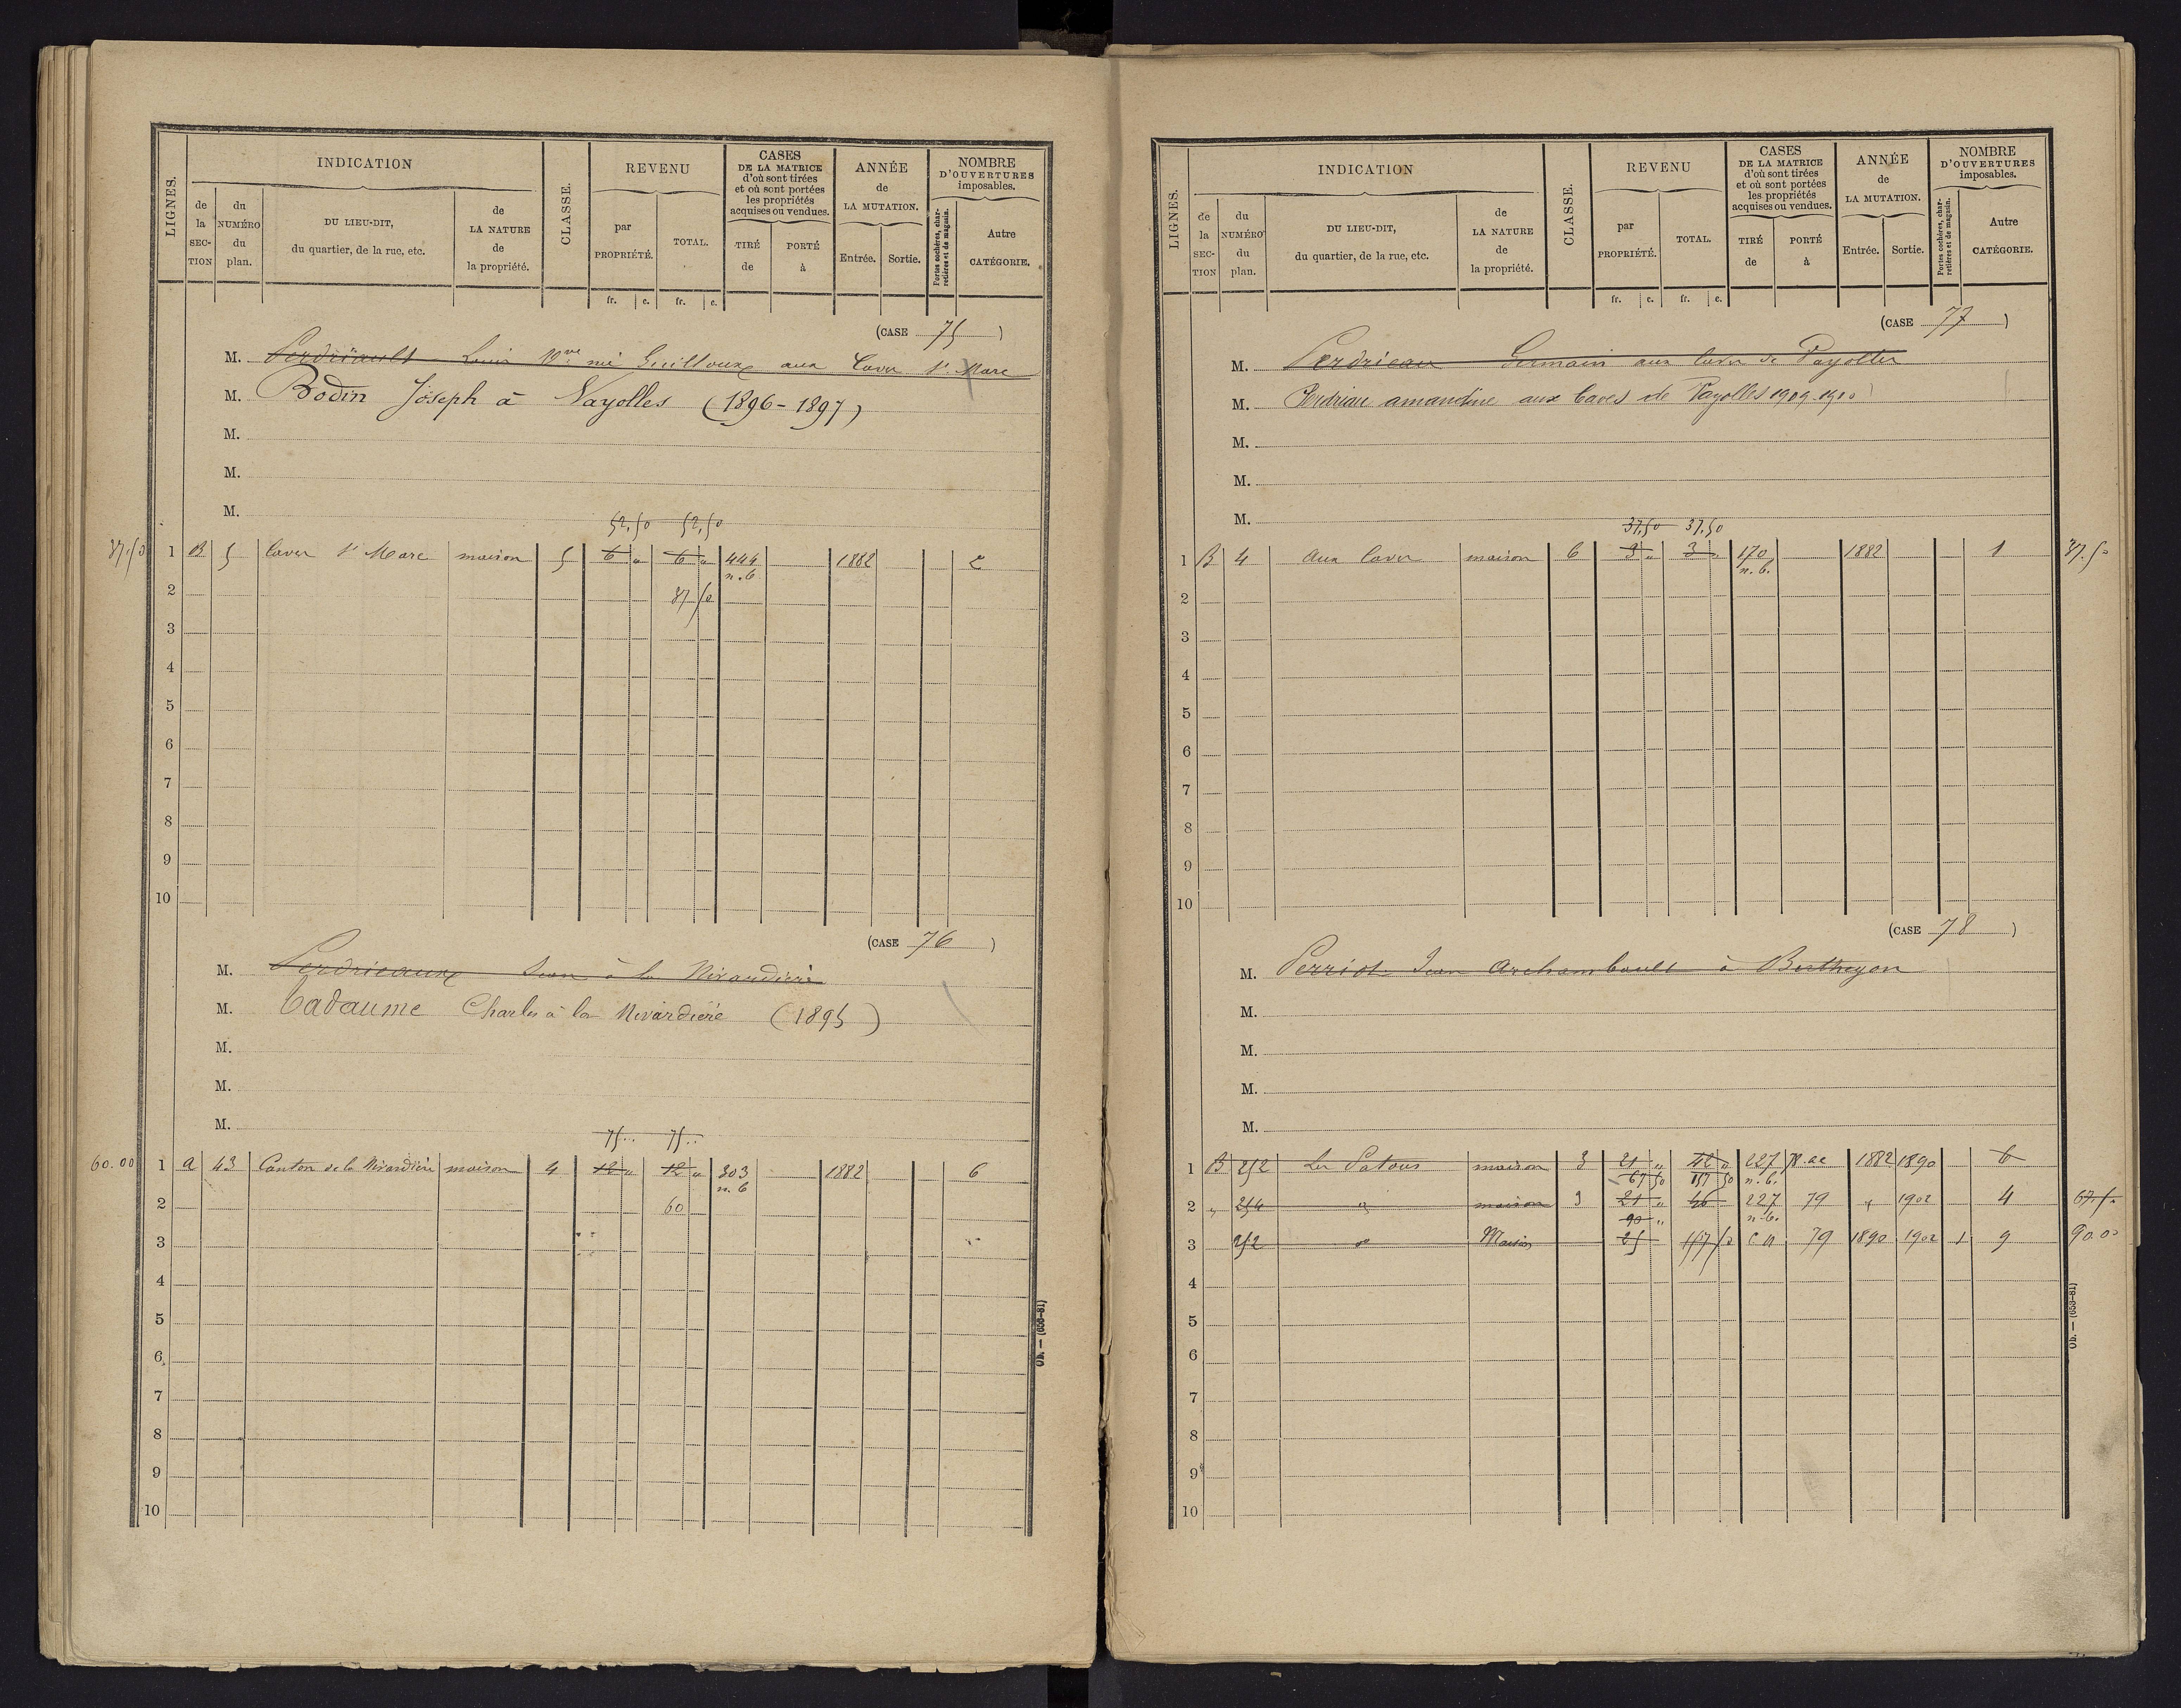 LIGNES.
INDICATION
de la SECTION
du NUMÉRO du plan.
DU LIEU-DIT, du quartier, de la rue, etc.
de LA NATURE de la propriété.
CLASSE.
REVENU
par PROPRIÉTÉ.
TOTAL.
CASES DE LA MATRICE d'où sont tirées et où sont portées les propriétés acquises ou vendues.
TIRÉ de
PORTÉ à
ANNÉE de LA MUTATION.
Entrée.
Sortie.
NOMBRE D'OUVERTURES imposables.
Portes cochères, charretières et de magasin.
Autre CATÉGORIE.
fr. c. fr. c.
(CASE 75)
M. Perdriault Louis Vve née Guilloux aux Caves St Marc
M. Bodin Joseph à Nayolles (1896-1897)
M.
M.
M.
52,50 52,50
37,50 1 B 5 Caves St Marc maison 5 6 " 6 " 444 1882 2
n.b
2 37 50
3
4
5
6
7
8
9
10
(CASE 76)
M. Perdrieaux Jean à la Nivardière
M. Cadaume Charles à la Nivardière (1895)
M.
M.
M.
75.. 75..
60.00 1 a 43 Canton de la Nivardière maison 4 12 " 12 " 303 1882 6
n.b
2 60
3
4
5
6
7
8
9
10
LIGNES.
INDICATION
de la SECTION
du NUMÉRO du plan.
DU LIEU-DIT, du quartier, de la rue, etc.
de LA NATURE de la propriété.
CLASSE.
REVENU
par PROPRIÉTÉ.
TOTAL.
CASES DE LA MATRICE d'où sont tirées et où sont portées les propriétés acquises ou vendues.
TIRÉ de
PORTÉ à
ANNÉE de LA MUTATION.
Entrée.
Sortie.
NOMBRE D'OUVERTURES imposables.
Portes cochères, charretières et de magasin.
Autre CATÉGORIE.
fr. c. fr. c.
(CASE 77)
M. Perdrieau Germain aux Caves de Payolles
M. Perdriau amandine aux Caves de Payolles 1909-1910
M.
M.
M.
37,50 37,50
1 B 4 Aux Caves maison 6 3 " 3 " 170 1882 1 37.50
n.b.
2
3
4
5
6
7
8
9
10
(CASE 78)
M. Perriot Jean Archambault à Berthegon
M.
M.
M.
M.
1 B 252 Les Patous maison 3 21 " 42 " 227 1882 1890 6
67 50 157 50 n.b.
2 " 254 " maison 3 21 " 46 227 79 " 1902 4 67.50
90 " n.b.
3 252 " Maison 25 157 50 79 1890 1902 1 9 90.00
4
5
6
7
8
9
10
Ob. — (653-81)